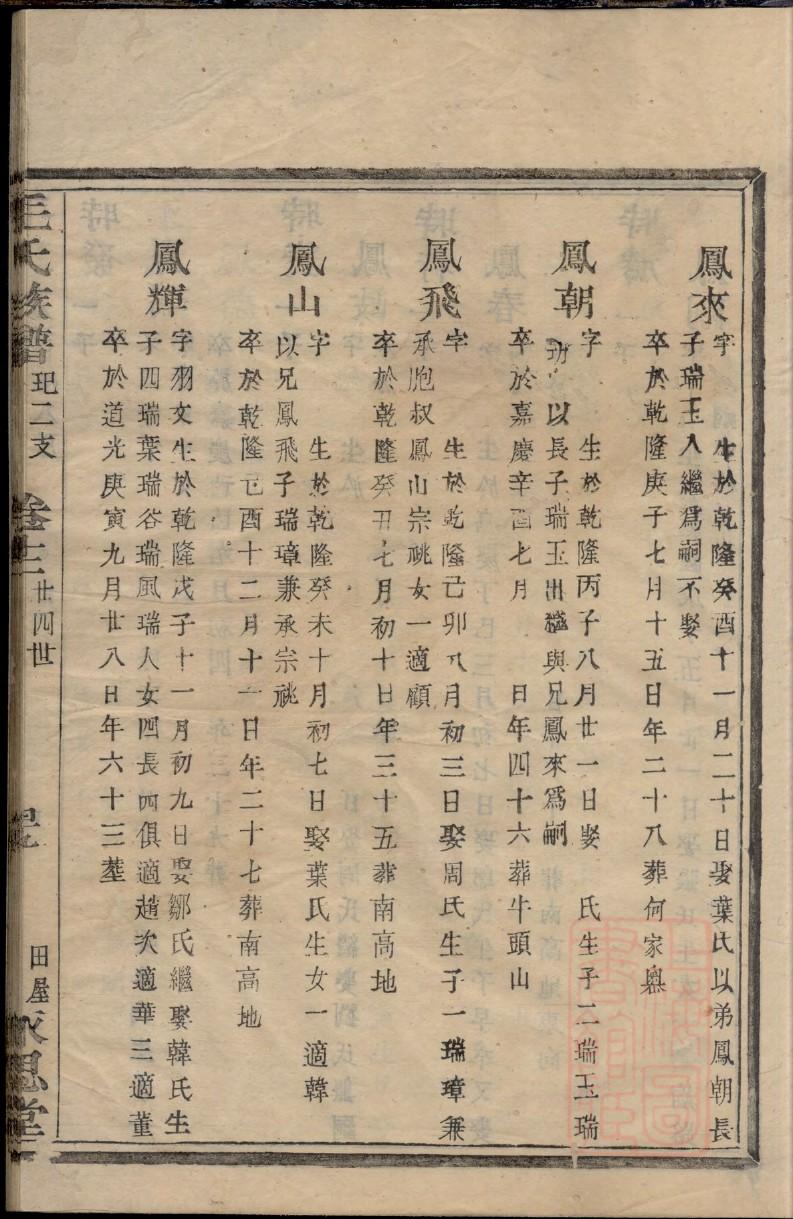 鳳來
字　生於乾隆癸酉十一月二十日娶葉氏以弟鳳朝長
子瑞玉入繼爲嗣不娶
卒於乾隆庚子七月十五日年二十八葬何家嶴
鳳朝
字　生於乾隆丙子八月廿一日娶　氏生子二瑞玉瑞
玏以長子瑞玉出繼與兄鳳來爲嗣
卒於嘉慶辛酉七月　日年四十六葬牛頭山
鳳飛
字　生於乾隆己卯八月初三日娶周氏生子一瑞璋兼
承胞叔鳳山宗祧女一適顧
卒於乾隆癸丑七月初十日年三十五葬南高地
鳳山
字　生於乾隆癸未十月初七日娶葉氏生女一適韓
以兄鳳飛子瑞璋兼承宗祧
卒於乾隆己酉十二月十一日年二十七葬南高地
鳳輝
字羽文生於乾隆戊子十一月初九日娶鄒氏繼娶韓氏生
子四瑞葉瑞谷瑞風瑞人女四長四俱適趙次適華三適董
卒於道光庚寅九月廿八日年六十三塟
王氏族譜　玘二支　卷十二　廿四世　田屋永思堂